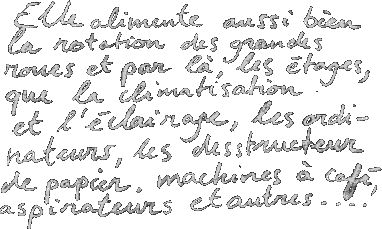 Elle alimente aussi bien
la rotation des grandes
roues et par là, les étages,
que la climatisation
et l'éclairage, les ordi-
nateurs, les desstructeur
de papier, machines à café,
aspirateurs et autres.....